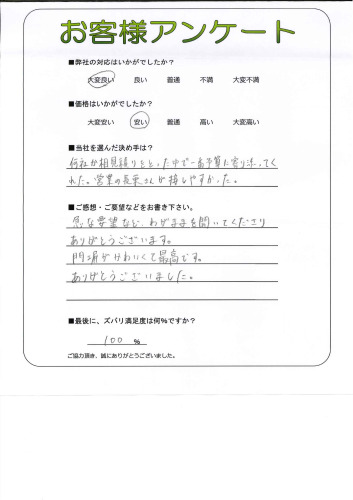 お客様アンケート
■弊社の対応はいかがでしたか？
大変良い 良い 普通 不満 大変不満
■価格はいかがでしたか？
大変安い 安い 普通 高い 大変高い
■当社を選んだ決め手は？
何社か相見積りをとった中で一番予算に寄り添ってく
れた。営業の長束さんが接しやすかった。
■ご感想・ご要望などをお書き下さい。
急な要望など、わがままを聞いてくださり
ありがとうございます。
門塀がかわいくて最高です。
ありがとうございました。
■最後に、ズバリ満足度は何％ですか？
100 ％
ご協力頂き、誠にありがとうございました。